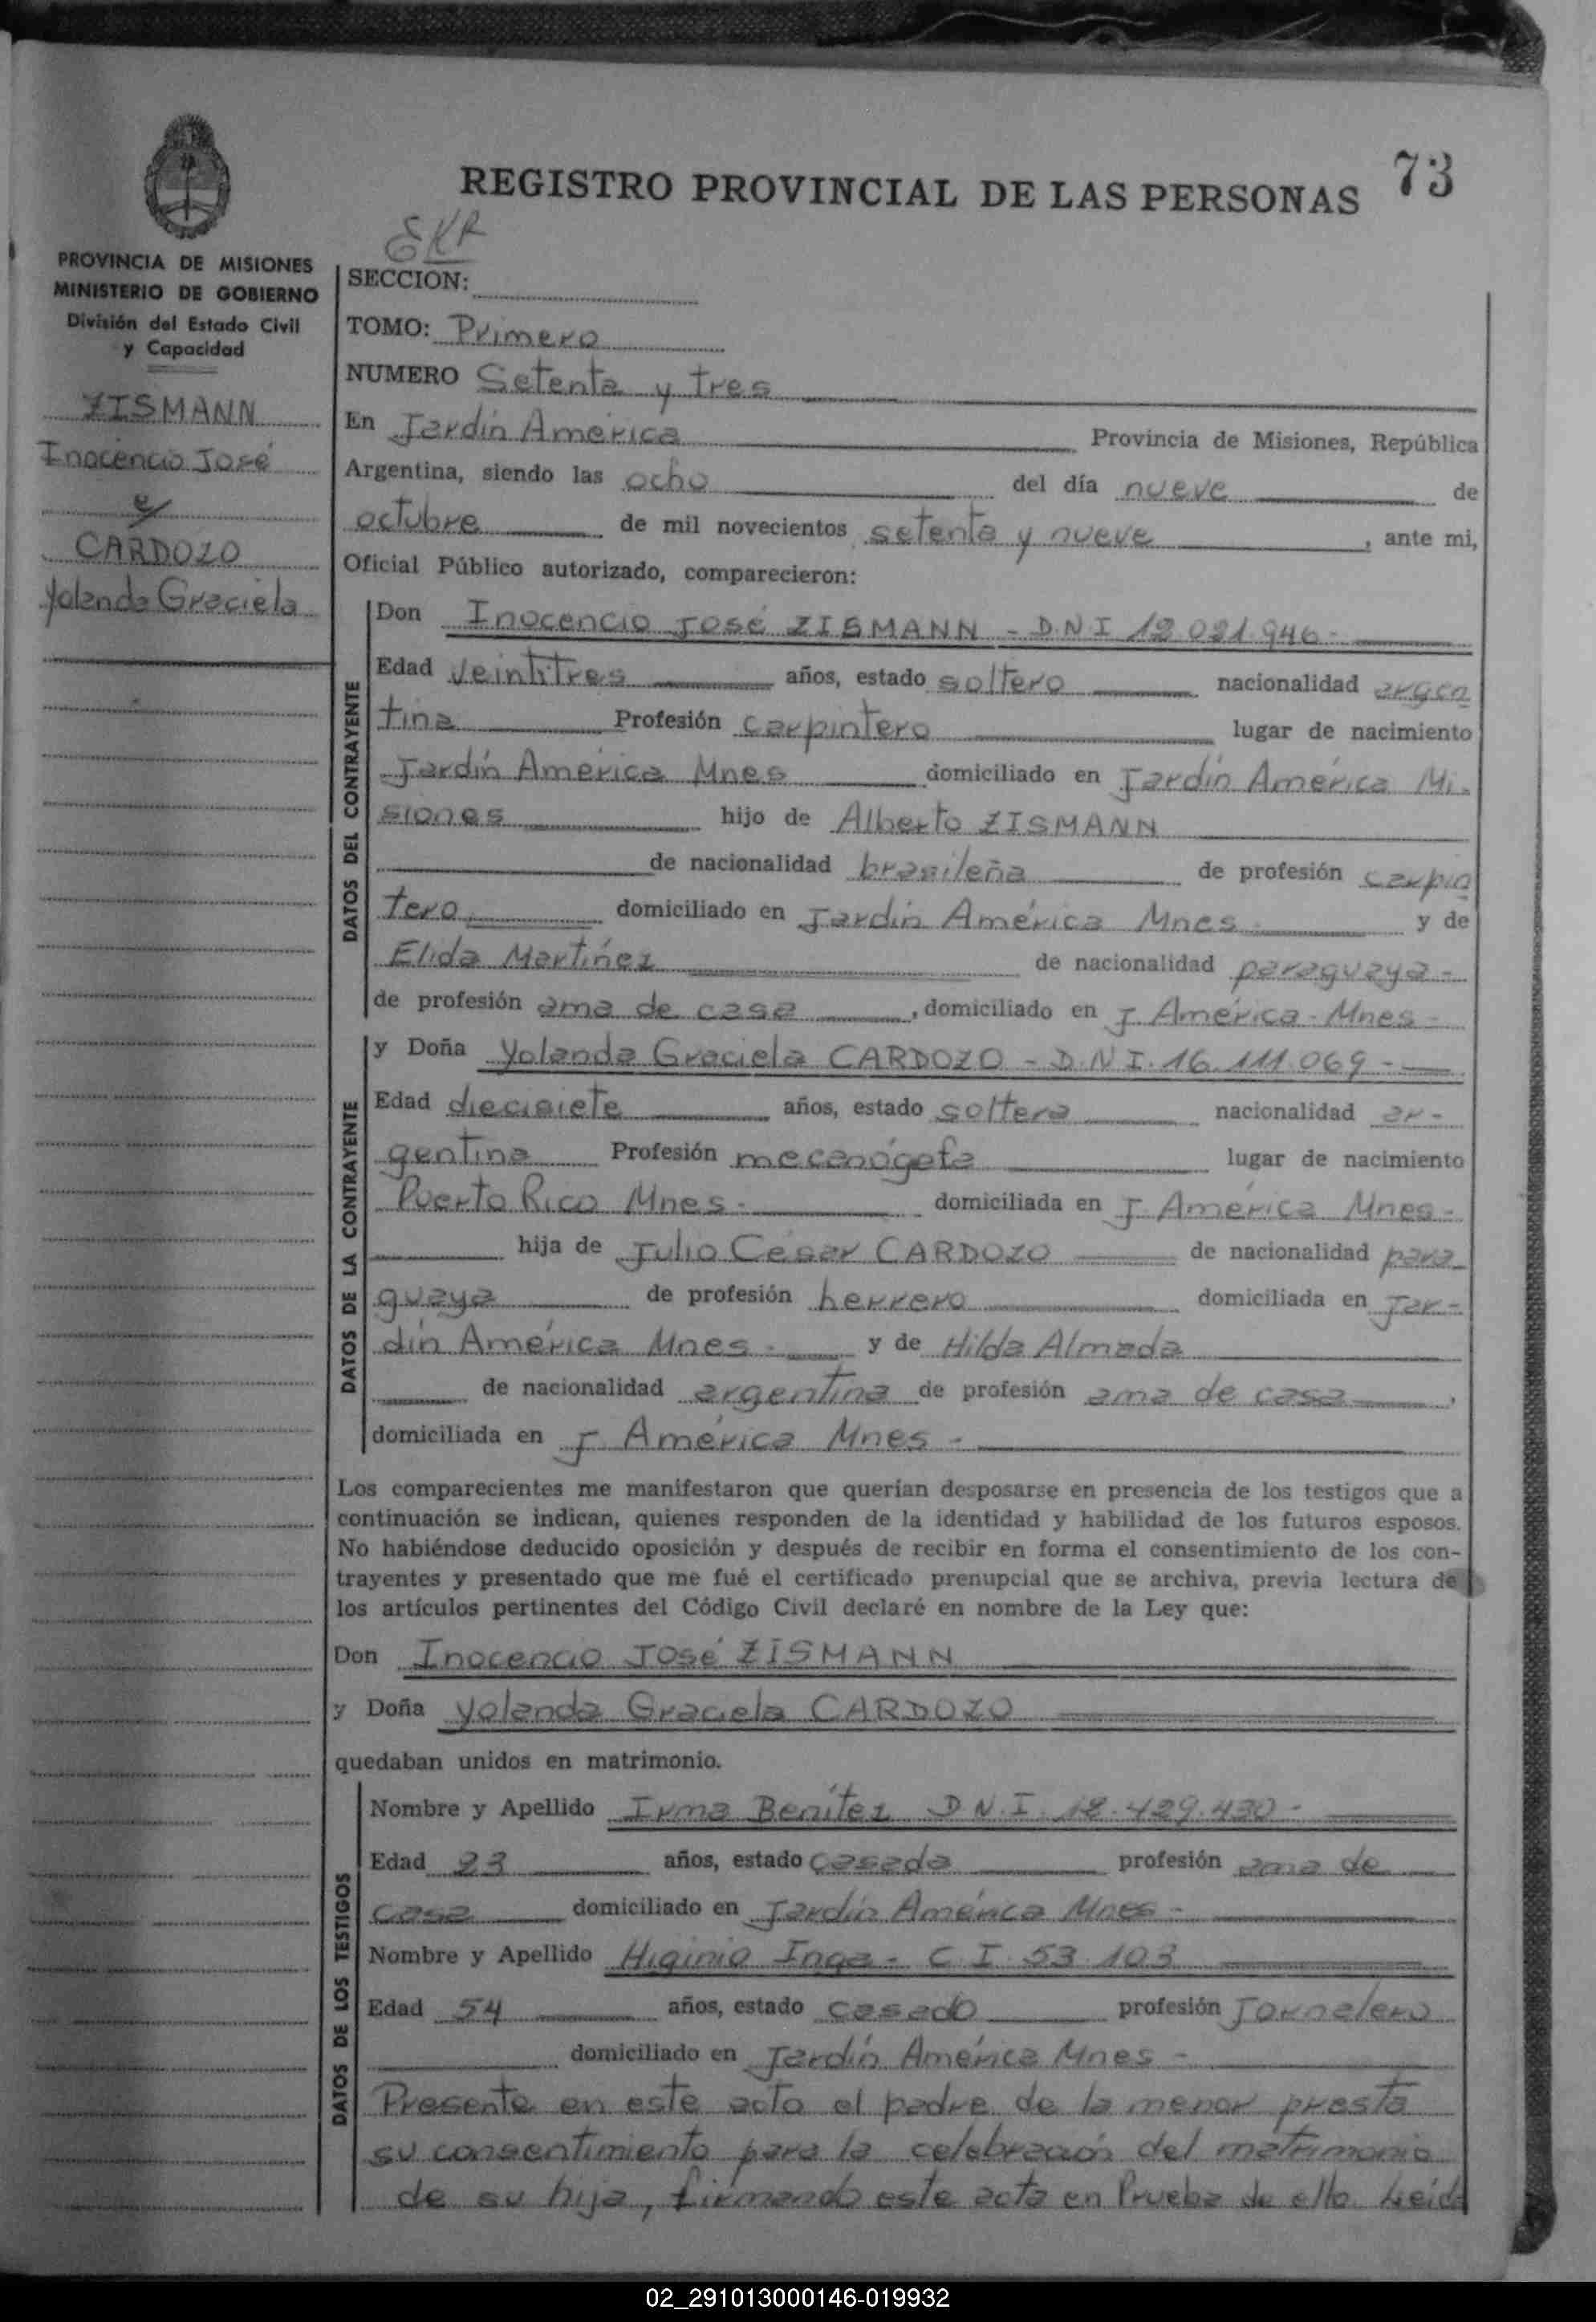 73
REGISTRO PROVINCIAL DE LAS PERSONAS
PROVINCIA DE MISIONES
MINISTERIO DE GOBIERNO
División del Estado Civil
y Capacidad
ZISMANN
Inocencio José
y
CARDOZO
Yolanda Graciela
SECCION:
TOMO: Primero
NUMERO Setenta y tres
En Jardín América Provincia de Misiones, República
Argentina, siendo las ocho del día nueve de
octubre de mil novecientos setenta y nueve, ante mi,
Oficial Público autorizado, comparecieron:
DATOS DEL CONTRAYENTE
Don Inocencio José ZISMANN - D.N.I 12.021.946-
Edad veintitres años, estado soltero nacionalidad argen
tina Profesión carpintero lugar de nacimiento
Jardín América Mnes domiciliado en Jardín América Mi-
siones hijo de Alberto ZISMANN
de nacionalidad brasileña de profesión carpin
tero domiciliado en Jardín América Mnes y de
Elida Martínez de nacionalidad paraguaya-
de profesión ama de casa, domiciliado en J. América-Mnes-
DATOS DE LA CONTRAYENTE
y Doña Yolanda Graciela CARDOZO - D.N.I. 16.111.069-
Edad diecisiete años, estado soltera nacionalidad ar-
gentina Profesión mecanógafa lugar de nacimiento
Puerto Rico Mnes- domiciliada en J. América Mnes-
hija de Julio César CARDOZO de nacionalidad para
guaya de profesión herrero domiciliada en Jar-
dín América Mnes- y de Hilda Almada
de nacionalidad argentina de profesión ama de casa,
domiciliada en J América Mnes-
Los comparecientes me manifestaron que querían desposarse en presencia de los testigos que a
continuación se indican, quienes responden de la identidad y habilidad de los futuros esposos.
No habiéndose deducido oposición y después de recibir en forma el consentimiento de los con-
trayentes y presentado que me fué el certificado prenupcial que se archiva, previa lectura de
los artículos pertinentes del Código Civil declaré en nombre de la Ley que:
Don Inocencio José ZISMANN
y Doña Yolanda Graciela CARDOZO
quedaban unidos en matrimonio.
DATOS DE LOS TESTIGOS
Nombre y Apellido Irma Benítez D.N.I. 12.429.430-
Edad 23 años, estado casada profesión ama de
casa domiciliado en Jardín América Mnes-
Nombre y Apellido Higinio Inga- C.I. 53.103
Edad 54 años, estado casado profesión Jornalero
domiciliado en Jardín América Mnes-
Presente en este acto el padre de la menor presta
su consentimiento para la celebración del matrimonio
de su hija, firmando este acta en Prueba de ello. Leída
02_291013000146-019932